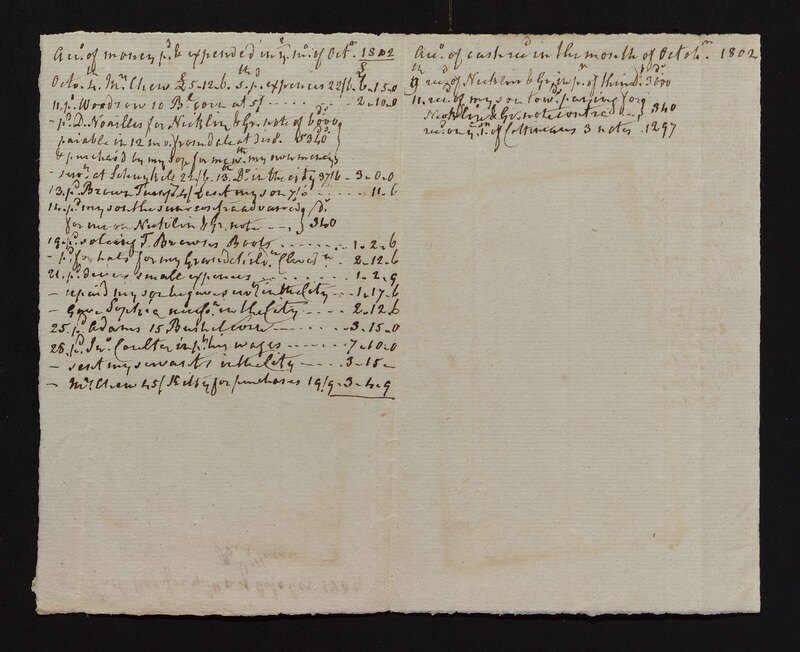 Acco. of money pd. & expended in ye. mo. of Octo. 1802
Octo. 4. Mrs. Chew £5-12-6. 5th pd. expences 22/6. £6-15-0
11. pd. Woodrow 10 Bs. corn at 5/ 2-10-0
- pd. D. Noailles for Nicklin & Gr. note of 6000
payable in 12 mo. from date at Dis. 5340 Ds.
& purchased by my son for me wth. my own money
- serv. at Schuylkill 22/6. 13th. Do. in the city 37/6 - 3-0-0
13. pd. Brown 4/ sent my son 7/6 11-6
14. pd. my son the sum he advanced
for me on Nicklin & Gr. note 340 Ds.
19. pd. soleing T. Brewses Boots 1-2-6
- pd. for hats for my Grandchildn. 2-12-6
21. pd. divers small expences 1-2-9
- repaid my son he gave servts. in the city 1-17-6
- Gave Sophia in the city 2-12-6
25. pd. Adams 15 Bushels corn 3-15-0
28. pd. Jno. Coulter in pt. his wages 7-10-0
- sent my servants in the city 3-15-
- Mrs. Chew 45/ Kitty for purchases 19/9 - 3-4-9
Acco. of cash recd. in the month of Octobr. 1802
9th recd. of Nicklin & Gr. in pt. of third 3000 Ds.
11. recd. of my son
Nicklin & Gr. note 340
recd. on 3 notes. 1297